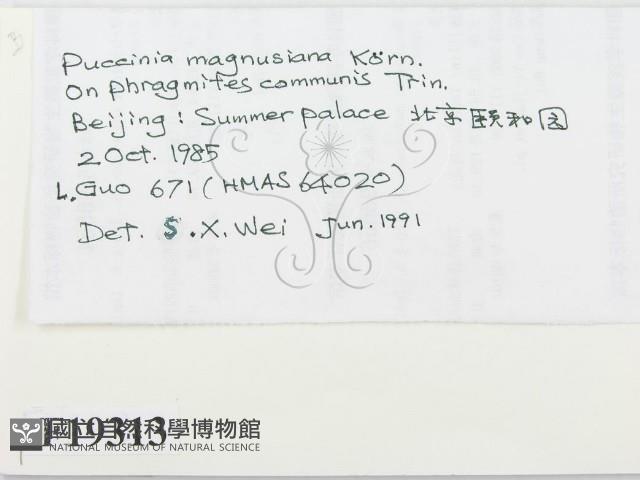 Puccinia magnusiana Körn.
On phragmites communis Trin.
Beijing : Summer palace 北京颐和园
2 Oct. 1985
L. Guo 671 (HMAS 64020)
Det. S. X. Wei Jun. 1991
F19313
國立自然科學博物館
NATIONAL MUSEUM OF NATURAL SCIENCE